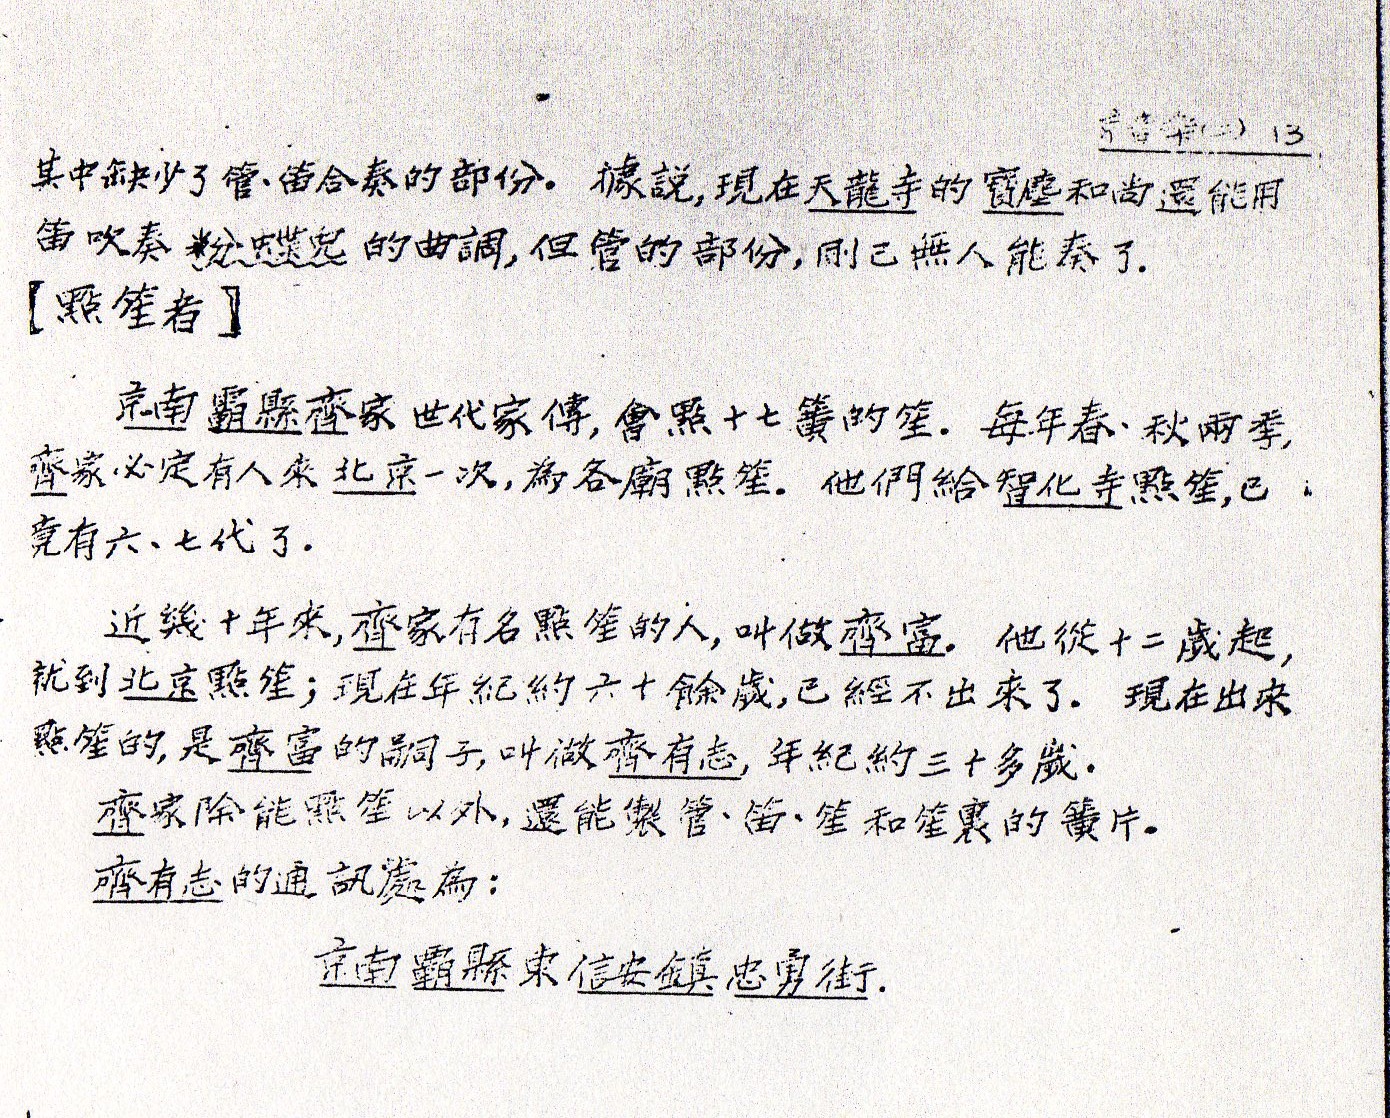 京音樂(二) 13
其中缺少了管、笛合奏的部份。據説,現在天龍寺的寶塵和尚還能用
笛吹奏粉蝶兒的曲調,但管的部份,刚已無人能奏了.
【點笙者】
京南霸縣齊家世代家傳,會點十七簧的笙.每年春、秋兩季,
齊家必定有人來北京一次,為各廟點笙.他們給智化寺點笙,已
竟有六、七代了.
近幾十年來,齊家有名點笙的人,叫做齊富.他從十二歲起,
就到北京點笙;現在年紀約六十餘歲,已經不出來了.現在出來
點笙的,是齊富的嗣子,叫做齊有志,年紀約三十多歲.
齊家除能點笙以外,還能製管、笛、笙和笙裏的簧片。
齊有志的通訊處為:
京南霸縣東信安鎮忠勇街.